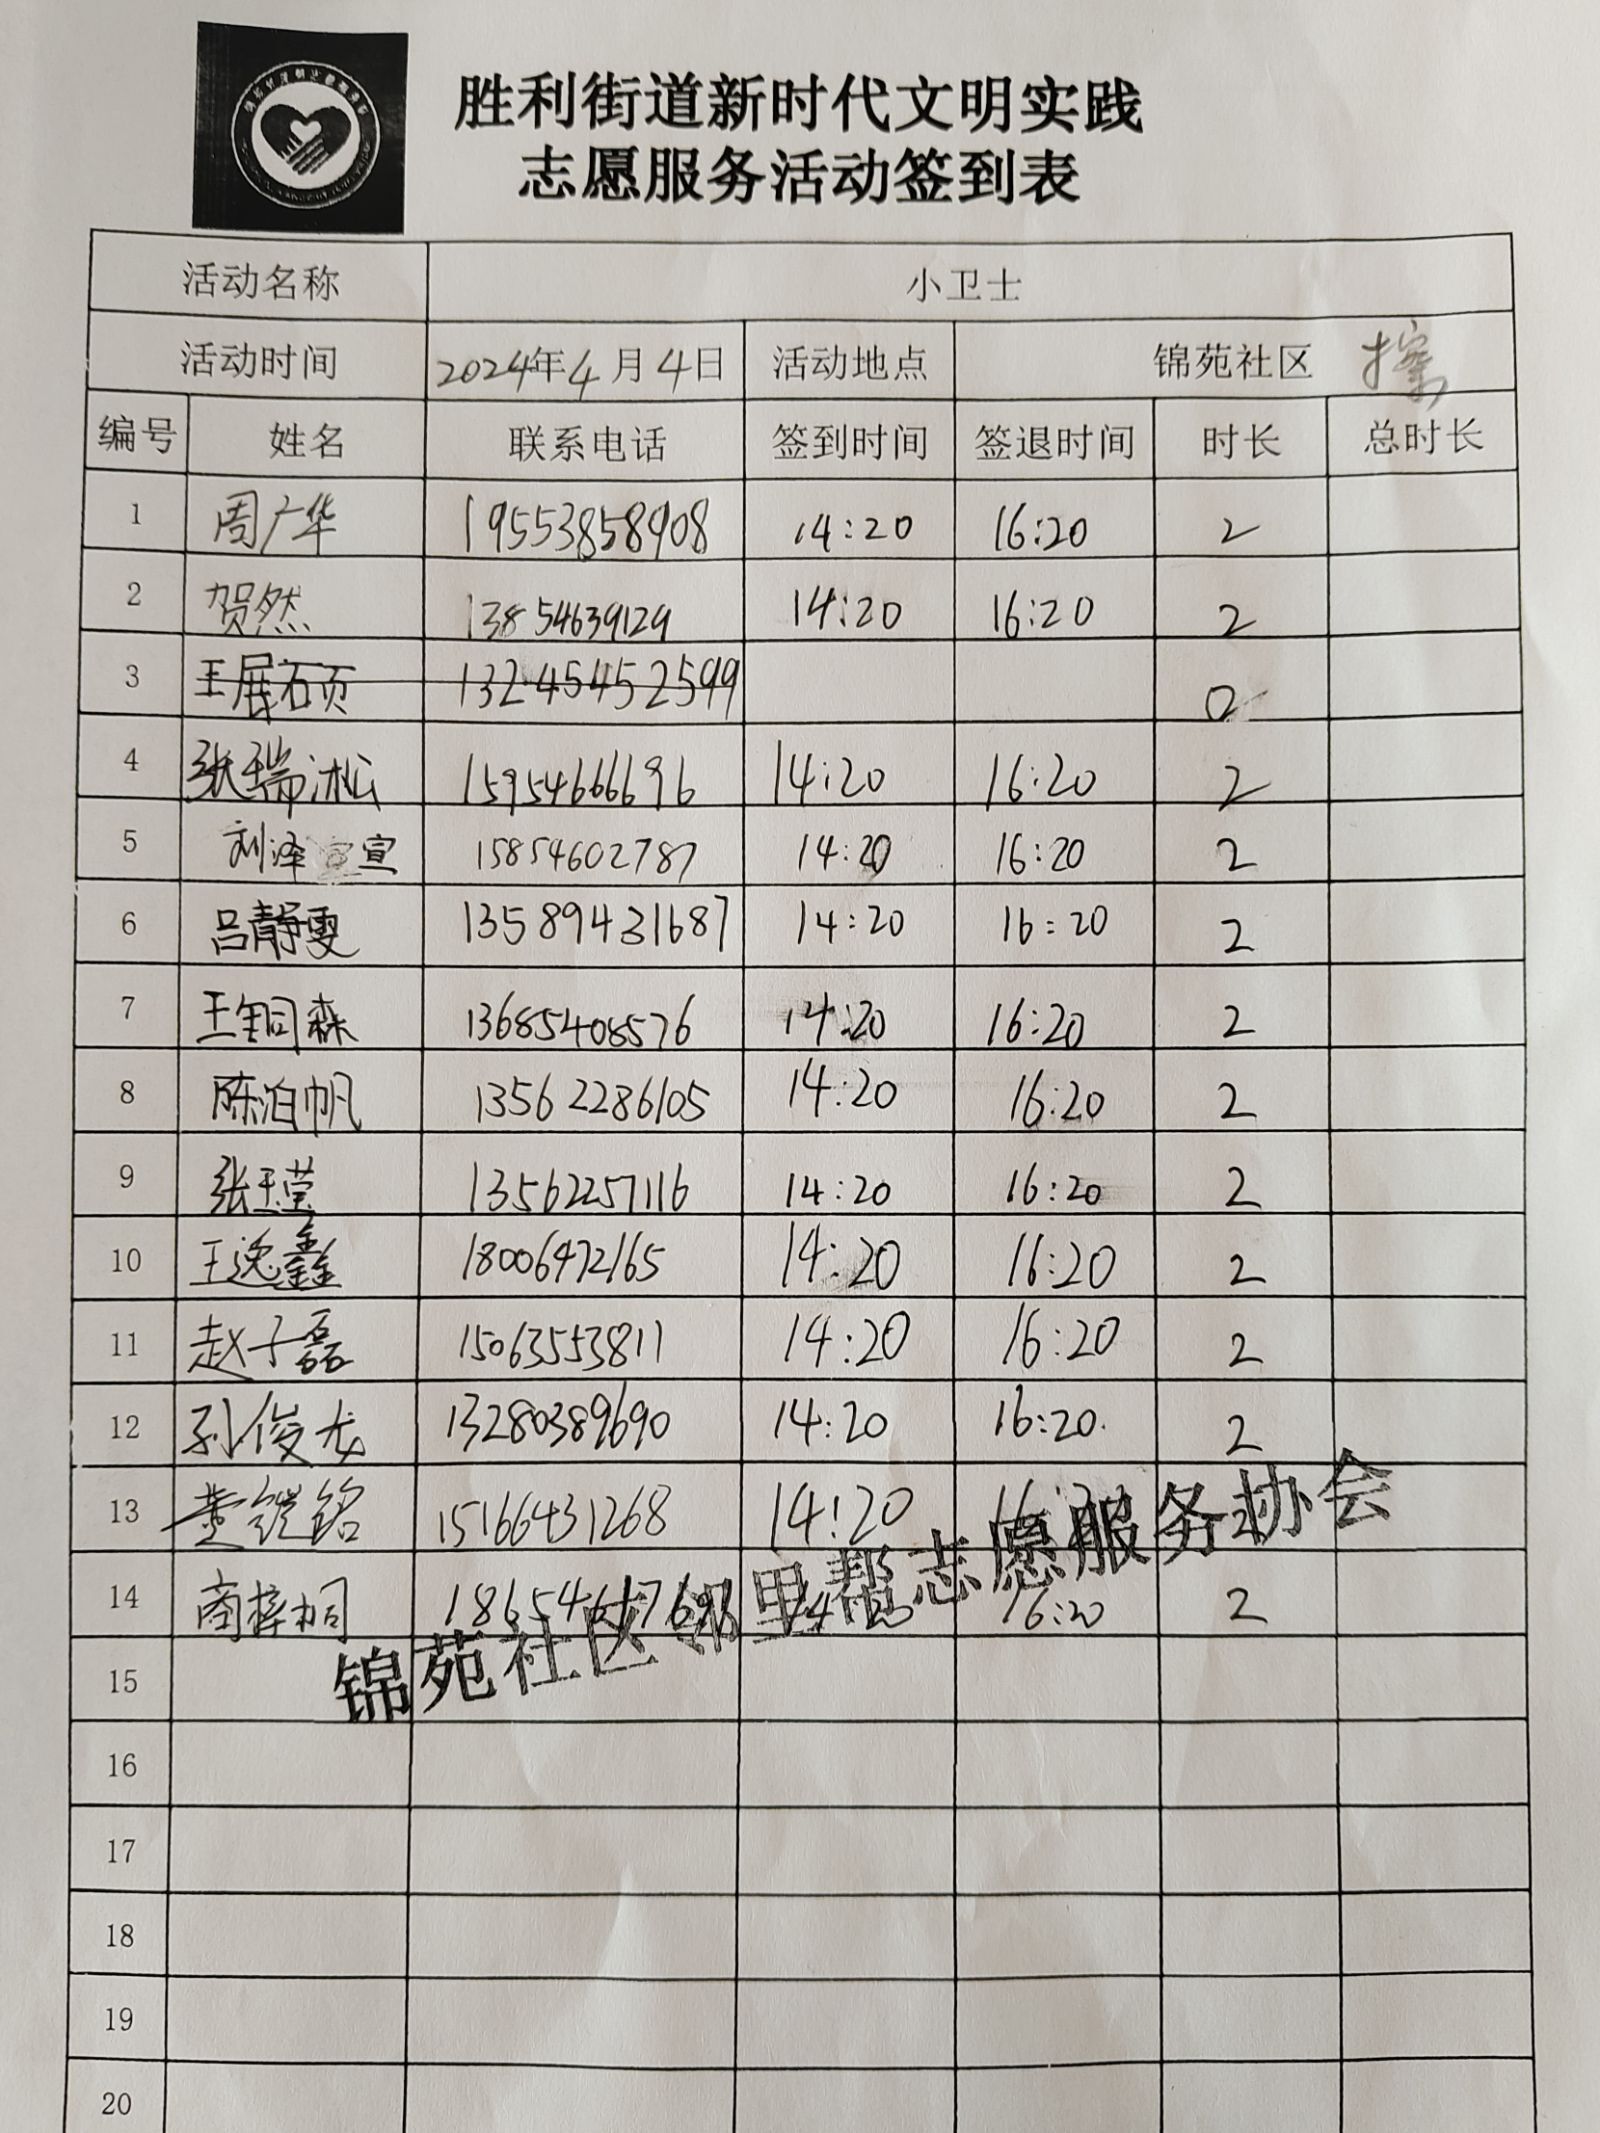 胜利街道新时代文明实践
志愿服务活动签到表
活动名称 小卫士
活动时间 2024年4月4日 活动地点 锦苑社区 擦
编号 姓名 联系电话 签到时间 签退时间 时长 总时长
1 周广华 19553858908 14:20 16:20 2
2 贺然 13854639129 14:20 16:20 2
3 王展硕 13245452599 0
4 张瑞淞 15954666696 14:20 16:20 2
5 刘泽宣 15854602787 14:20 16:20 2
6 吕静雯 13589431687 14:20 16:20 2
7 王铜森 13685408576 14:20 16:20 2
8 陈泊帆 13562286105 14:20 16:20 2
9 张玉莹 13562257116 14:20 16:20 2
10 王逸鑫 18006472165 14:20 16:20 2
11 赵子磊 15063553811 14:20 16:20 2
12 孙俊龙 13280389690 14:20 16:20 2
13 黄铠铭 15166431268 14:20 16:20 2
14 商梓桐 14:20 16:20 2
锦苑社区邻里帮志愿服务协会
15
16
17
18
19
20